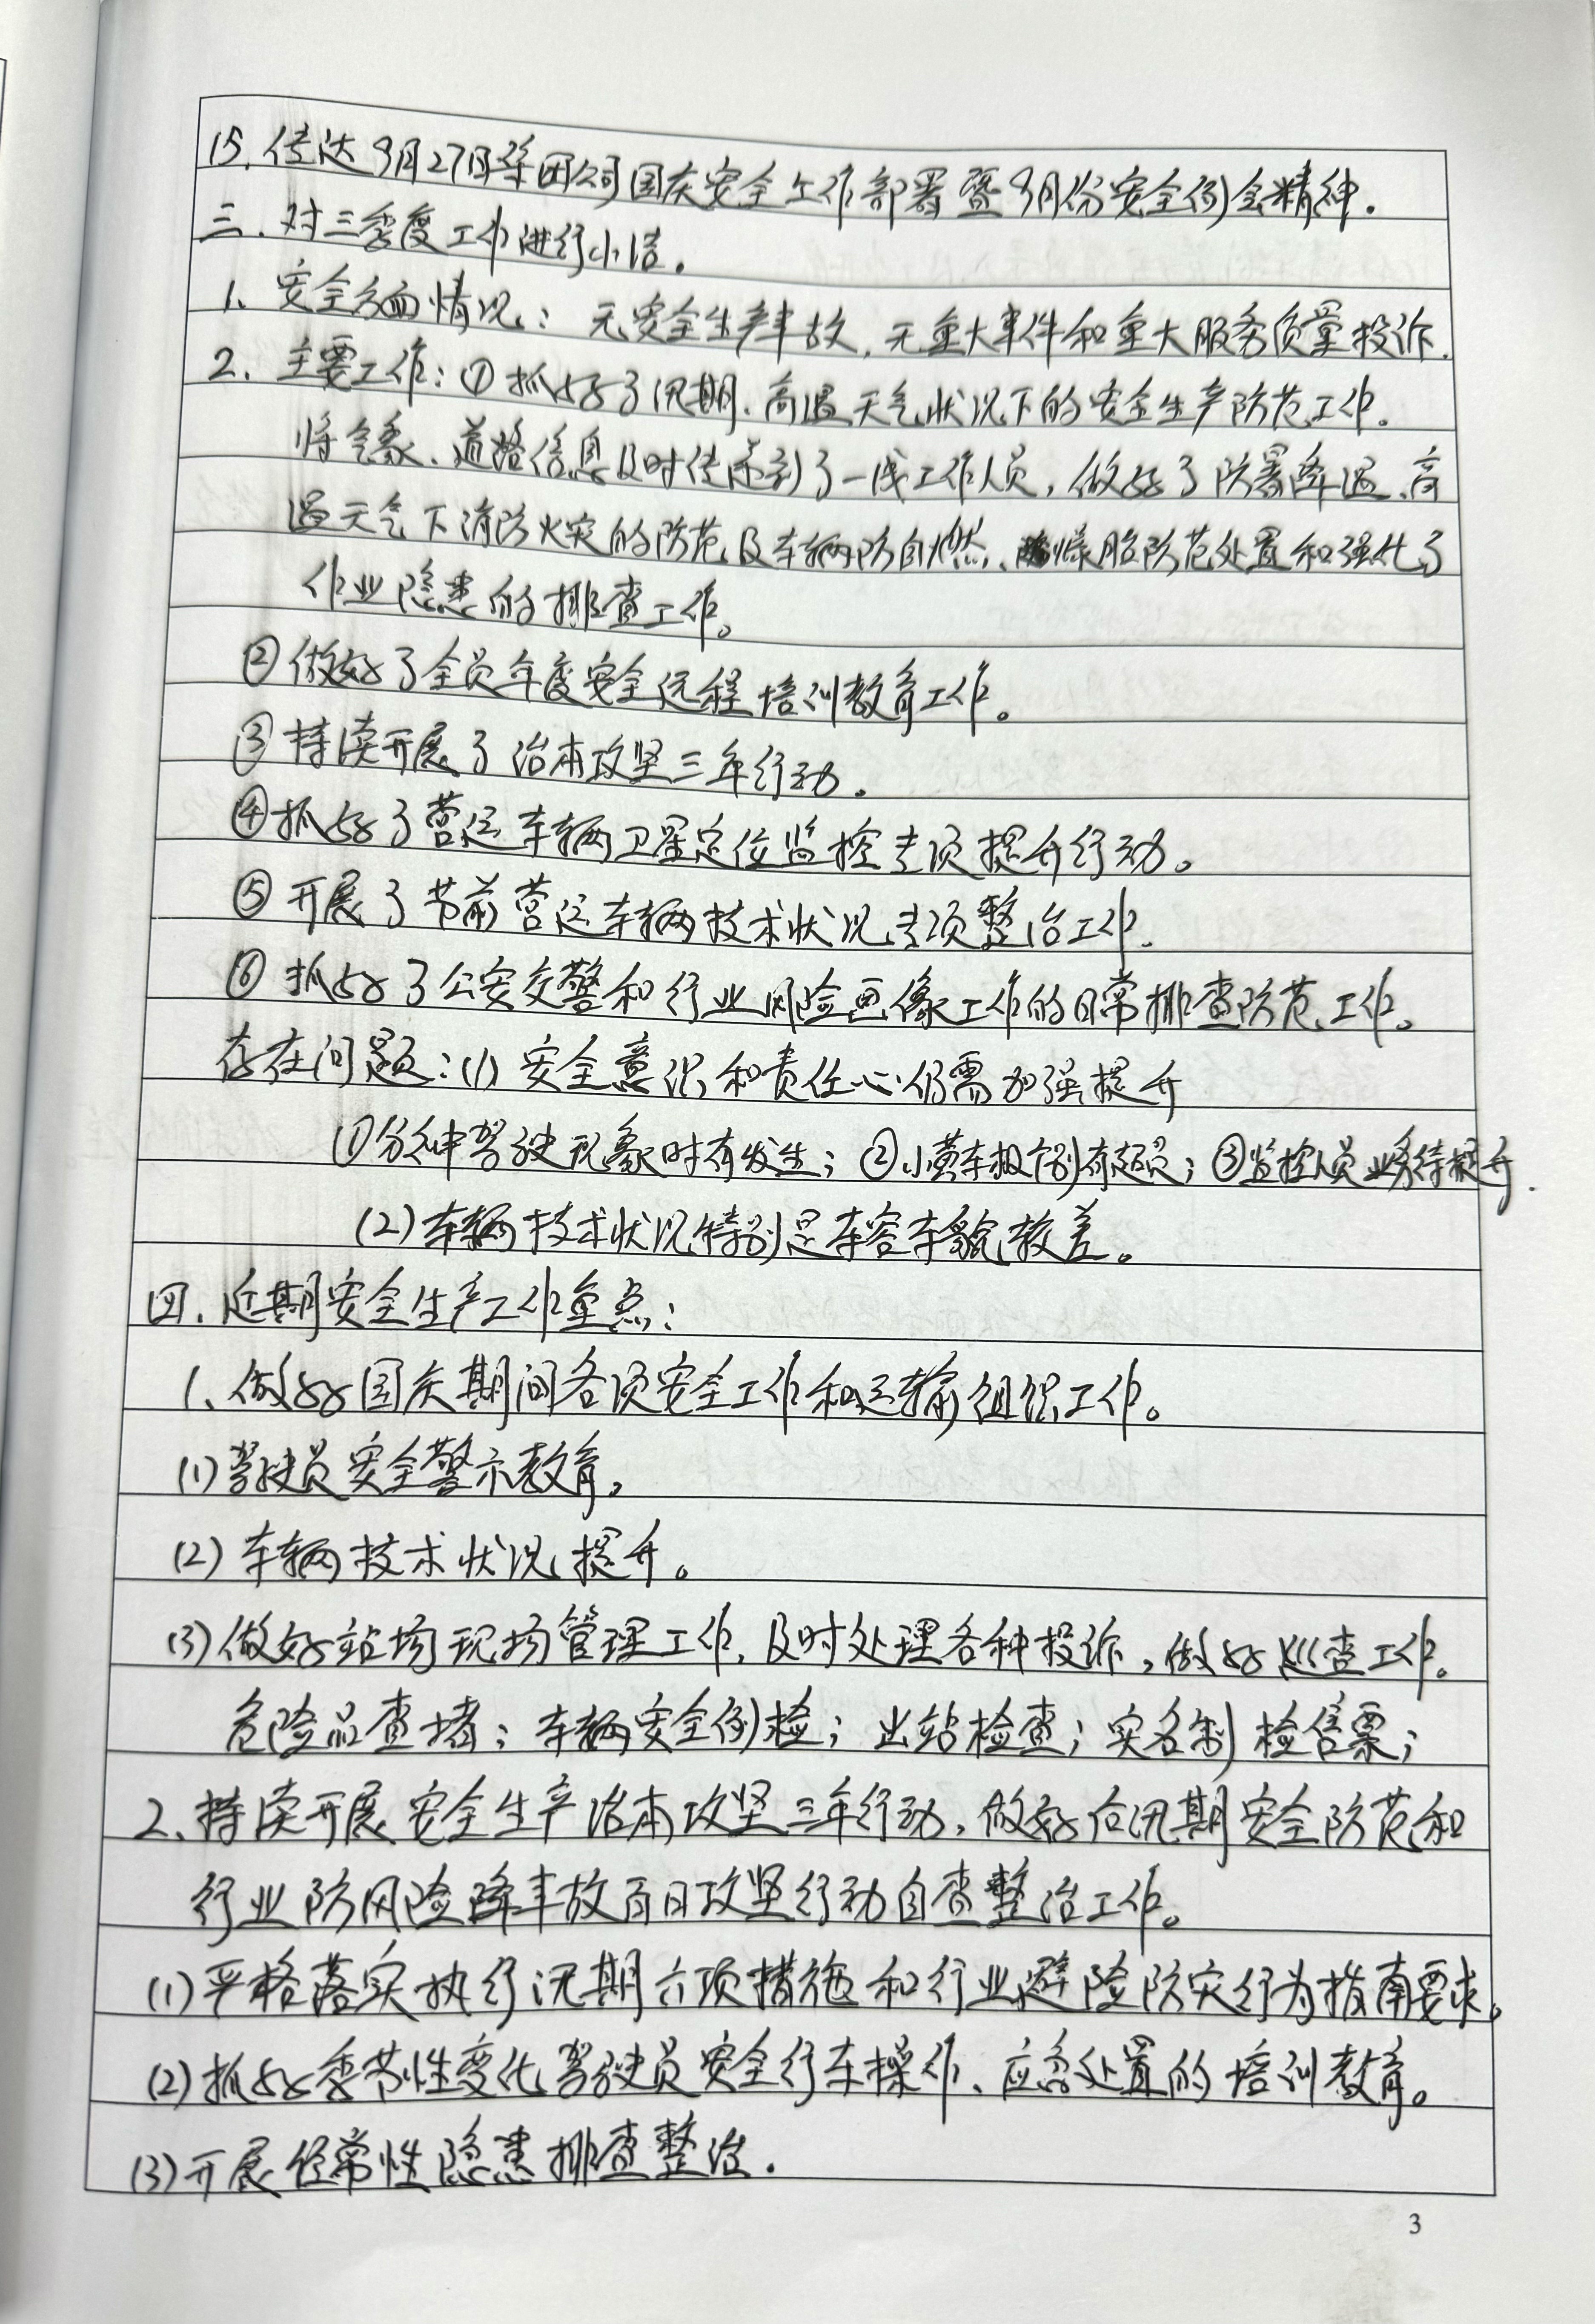 15. 传达9月27日集团公司国庆安全工作部署暨9月份安全例会精神.
三. 对三季度工作进行小结.
1. 安全方面情况: 无安全生产事故, 无重大事件和重大服务质量投诉.
2. 主要工作: ① 抓好了汛期、高温天气状况下的安全生产防范工作.
将气象、道路信息及时传递到了一线工作人员, 做好了防暑降温、高
温天气下消防火灾的防范及车辆防自燃、爆胎防范处置和强化了
作业隐患的排查工作。
② 做好了全员年度安全远程培训教育工作。
③ 持续开展了治本攻坚三年行动.
④ 抓好了营运车辆卫星定位监控专项提升行动。
⑤ 开展了节前营运车辆技术状况专项整治工作.
⑥ 抓好了公安交警和行业风险画像工作的日常排查防范工作。
存在问题: (1) 安全意识和责任心仍需加强提升
① 分神驾驶现象时有发生; ② 小黄车极个别有超员; ③ 监控人员业务待提升.
(2) 车辆技术状况特别是车容车貌较差。
四. 近期安全生产工作重点:
1、做好国庆期间各项安全工作和运输组织工作。
(1) 驾驶员安全警示教育,
(2) 车辆技术状况提升。
(3) 做好站场现场管理工作, 及时处理各种投诉, 做好巡查工作。
危险品查堵; 车辆安全例检; 出站检查; 实名制检售票;
2、持续开展安全生产治本攻坚三年行动, 做好后汛期安全防范和
行业防风险降事故百日攻坚行动自查整治工作。
(1) 严格落实执行汛期六项措施和行业避险防灾行为指南要求。
(2) 抓好季节性变化驾驶员安全行车操作、应急处置的培训教育。
(3) 开展经常性隐患排查整治.
3